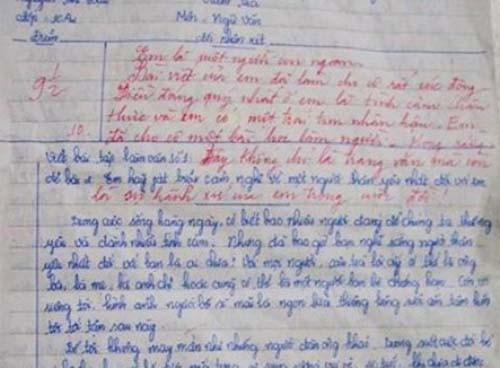 Lớp: 10A1
Môn: Ngữ Văn
Điểm
Lời nhận xét
9 1/2
Em là một người con ngoan.
Bài viết của em đã làm cho cô rất xúc động
Điều đáng quý nhất ở em là tình cảm chân
thực và em có một trái tim nhân hậu. Em
đã cho cô một bài học làm người. Mong rằng
10.
Viết bài tập làm văn số 1. Đây không chỉ là trang văn mà còn
Đề bài: Em hãy phát biểu cảm nghĩ về một người thân yêu nhất đối với em
là sự hành xử của em trong cuộc đời!
Trong cuộc sống hàng ngày, có biết bao nhiêu người đáng để chúng ta thương
yêu và dành nhiều tình cảm. Nhưng đã bao giờ bạn nghĩ rằng người thân
yêu nhất đối với bạn là ai chưa? Với mọi người, câu trả lời ấy có thể là ông
bà, là mẹ, là anh chị hoặc cũng có thể là một người bạn bè chẳng hạn. Còn với
riêng tôi, hình ảnh người bố sẽ mãi là ngọn lửa thiêng liêng sưởi ấm tâm hồn
tôi tới tận sau này.
Bố tôi không may mắn như những người đàn ông khác. Trong suốt cuộc đời bố